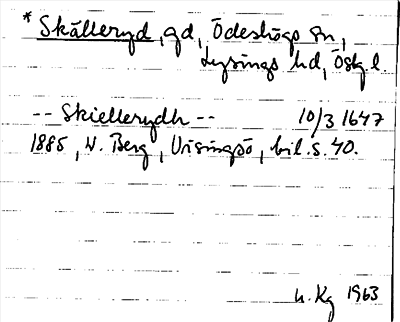 * Skälleryd, gd, Ödeshögs sn,
Lysings hd, Östg.l.
-- Skiellerydh -- 10/3 1647
1885, W. Berg, Visingsö, bil. s. 40.
u. Kg 1963